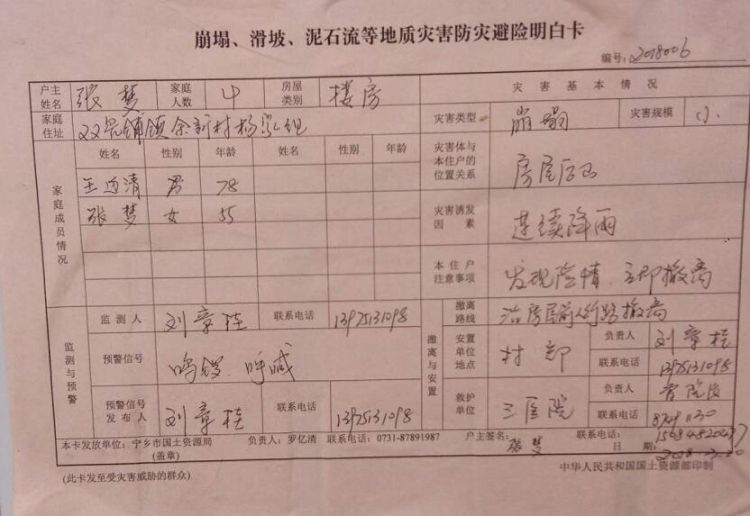 崩塌、滑坡、泥石流等地质灾害防灾避险明白卡
编号: 2018006
户主姓名 张梦 家庭人数 4 房屋类别 楼房 灾害基本情况
家庭住址 双凫铺镇余新村杨 组 灾害类型 崩塌 灾害规模 小
家庭成员情况 姓名 性别 年龄 姓名 性别 年龄 灾害体与本住户的位置关系 房屋后山
王 清 男 78
张梦 女 55 灾害诱发因素 连续降雨
本住户注意事项 发现险情.立即撤离
监测与预警 监测人 刘章桂 联系电话 13975131098 撤离与安置 撤离路线 沿房屋前 路撤离
预警信号 鸣锣.呼喊 安置单位地点 村部 负责人 刘章桂
联系电话 13975131098
预警信号发布人 刘章桂 联系电话 13975131098 救护单位 三医院 负责人 院长
联系电话
本卡发放单位:宁乡市国土资源局 负责人:罗亿清 联系电话:0731-87891987 户主签名: 张梦 联系电话:
(盖章) 日期:
(此卡发至受灾害威胁的群众) 中华人民共和国国土资源部印制